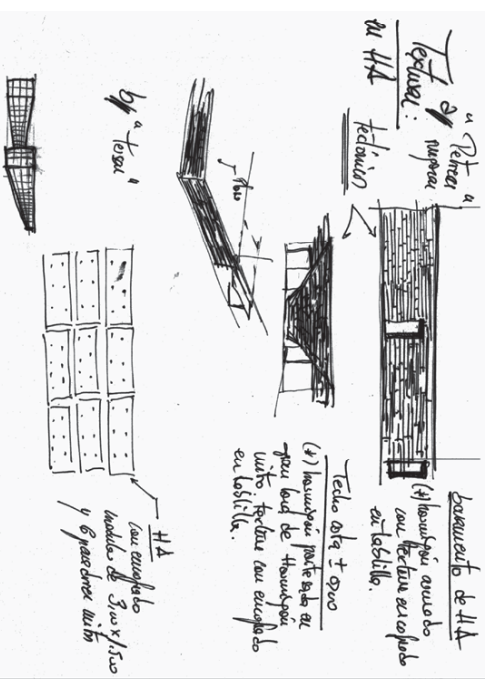 Textura:
en HA
a) "Petrea"
rugosa
tectónico
b) "tersa"
paramento de HA
(+) hormigón armado
con textura encofrado
en tablilla.
Techo cota ± 0,00
(+) hormigón
gran losa de Hormigón
visto. textura con encofrado
en tablilla.
HA
con encofrado
modulos de 3,00 x 1,50
y 6